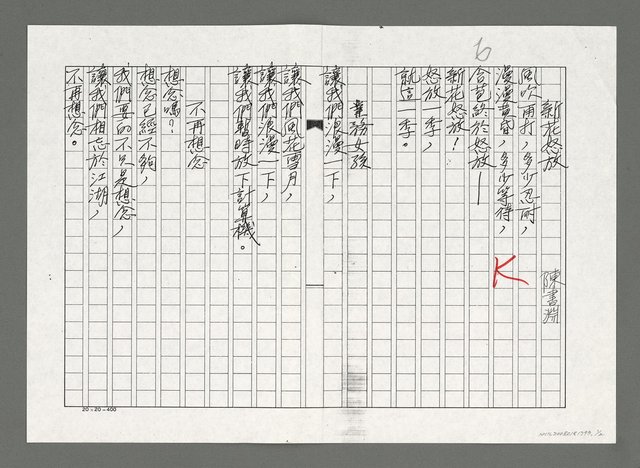 6
新花怒放
陳書淵
風吹雨打，多少忍耐，
漫漫黃昏，多少等得，
K
含苞終於怒放——
新花怒放！
怒放一季，
就這一季。
業務女孩
讓我們浪漫一下，
讓我們風花雪月，
讓我們浪漫一下，
讓我們暫時放下計算機。
不再想念
想念嗎？
想念已經不夠，
我們要的不只是想念，
讓我們相忘於江湖，
不再想念。
20×20=400